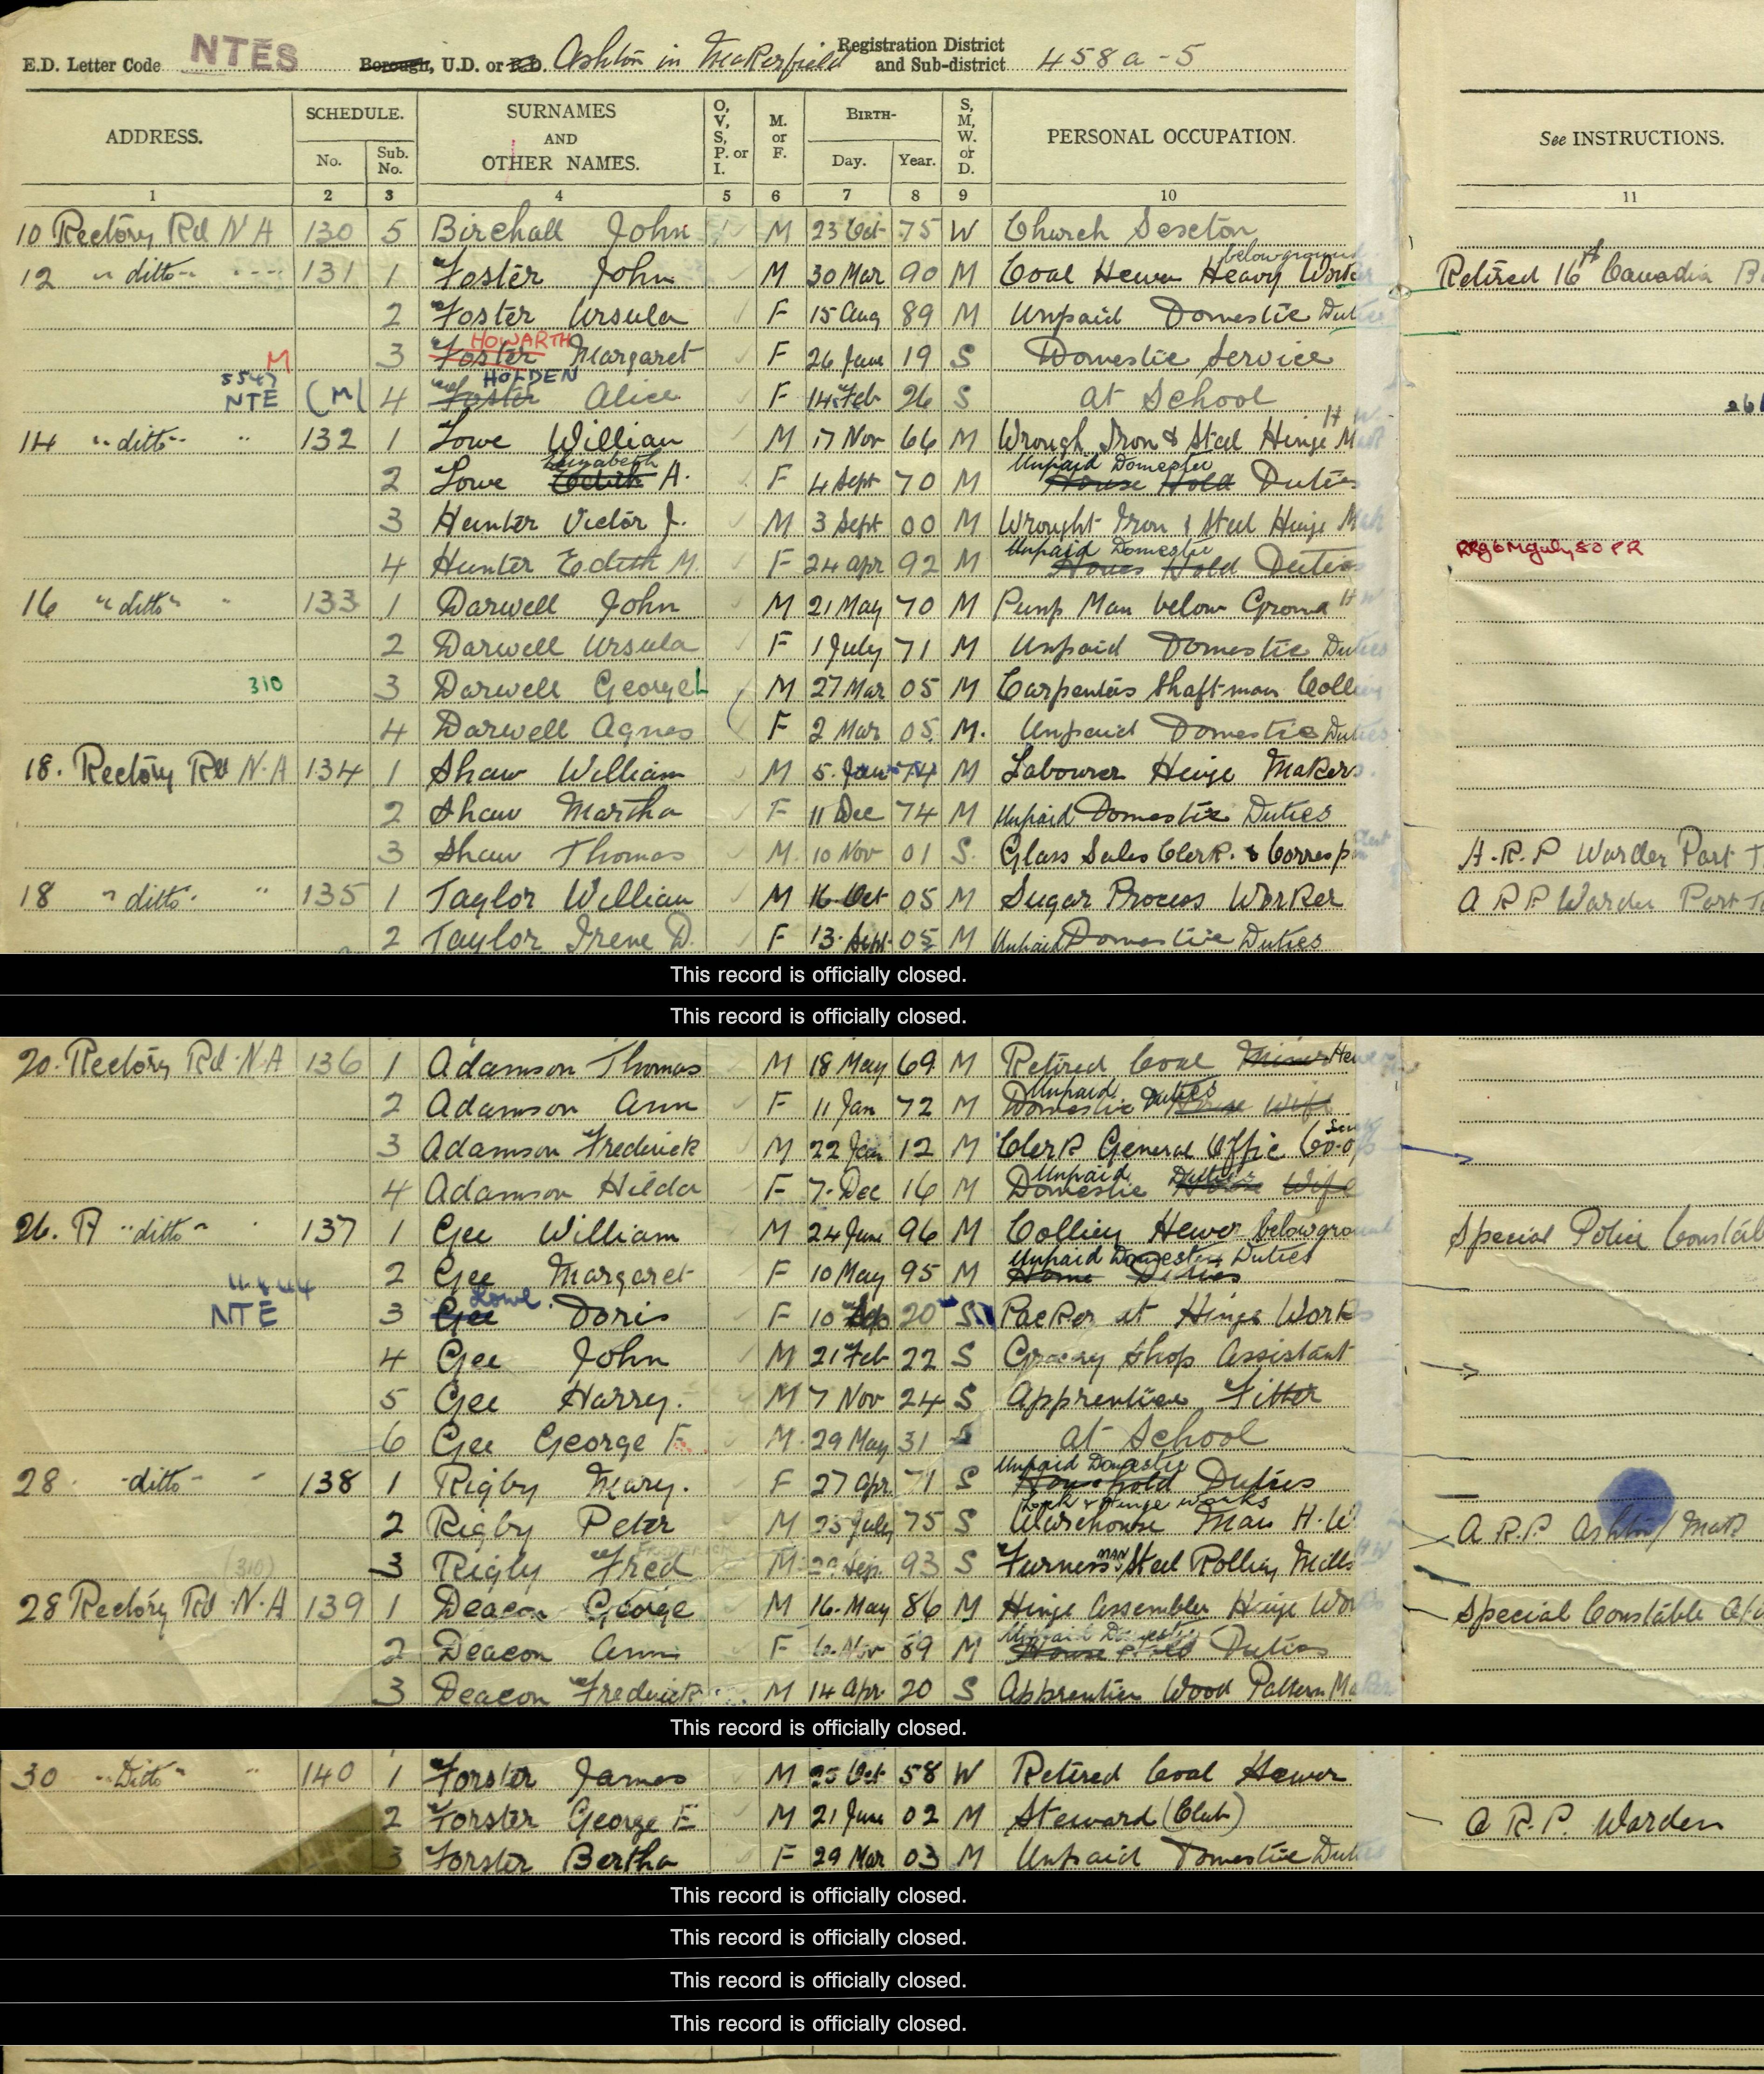 E.D. Letter Code NTES Borough, U.D. or R.D. Ashton in Makerfield Registration District and Sub-district 458a-5
ADDRESS. SCHEDULE. No. Sub. No. SURNAMES AND OTHER NAMES. O, V, S, P. or I. M. or F. BIRTH- Day. Year. S, M, W. or D. PERSONAL OCCUPATION. See INSTRUCTIONS.
1 2 3 4 5 6 7 8 9 10 11
10 Rectory Rd N A 130 5 Birchall John M 23 Oct 75 W Church Sexton
12 " ditto " 131 1 Foster John M 30 Mar 90 M Coal Hewer Heavy Worker belowground Retired 16th Canadian B
2 Foster Ursula F 15 Aug 89 M Unpaid Domestic Duties
M 3 Foster HOWARTH Margaret F 26 June 19 S Domestic Service
5547 NTE (M) 4 Foster HOLDEN Alice F 14 Feb 26 S at School 261
14 " ditto " " 132 1 Lowe William M 17 Nov 66 M Wrough Iron & Steel Hinge Mak H W
2 Lowe Edith Elizabeth A. F 4 Sept 70 M House Hold Unpaid Domestic Duties
3 Hunter Victor J. M 3 Sept 00 M Wrought Iron & Steel Hinge Mak
4 Hunter Edith M. F 24 Apr 92 M House Hold Unpaid Domestic Duties
16 " ditto " " 133 1 Darwell John M 21 May 70 M Pump Man below Ground H W
2 Darwell Ursula F 1 July 71 M Unpaid Domestic Duties
310 3 Darwell George L M 27 Mar 05 M Carpenters Shaftman Colliery
4 Darwell Agnes F 2 Mar 05 M. Unpaid Domestic Duties
18. Rectory Rd N.A 134 1 Shaw William M 5. Jan 74 M Labourer Hinge Makers.
2 Shaw Martha F 11 Dec 74 M Unpaid Domestic Duties
3 Shaw Thomas M. 10 Nov 01 S. Glass Sales Clerk. & Corresp A.R.P Warden Part T
18 " ditto " " 135 1 Taylor William M 16 Oct 05 M Sugar Process Worker A R P Warden Part T
2 Taylor Irene D. F 13. Sept 05 M Unpaid Domestic Duties
This record is officially closed.
This record is officially closed.
20. Rectory Rd. N A 136 1 Adamson Thomas M 18 May 69 M Retired Coal Miner Hewer
2 Adamson Ann F 11 Jan 72 M Unpaid Domestic Duties House Wife
3 Adamson Frederick M 22 Jan 12 M Clerk General Offic Co-op
4 Adamson Hilda F 7. Dec 16 M Unpaid Domestic Duties House Wife
26. A " ditto " 137 1 Gee William M 24 June 96 M Colliery Hewer below ground Special Police Constab
2 Gee Margaret F 10 May 95 M Home Duties Unpaid Domestic Duties
NTE 3 Gee Lowe. Doris F 10 Sep 20 S Packer at Hinge Works
4 Gee John M 21 Feb 22 S Grocery Shop Assistant
5 Gee Harry. M 7 Nov 24 S Apprentice Fitter
6 Gee George F. M. 29 May 31 S at School
28. " ditto " 138 1 Rigby Mary. F 27 Apr 71 S Household Unpaid Domestic Duties
2 Rigby Peter M 25 July 75 S Lock & Hinge works Warehouse Man H.W A.R.P. Ashton / Mak
(310) 3 Rigby Fred FREDERICK M. Sep. 93 S Furness MAN Steel Rolling Mills H W
28 Rectory Rd. N.A 139 1 Deacon George M 16. May 86 M Hinge Assembler Hinge Works Special Constable
2 Deacon Ann F Nov 89 M House Hold Unpaid Domestic Duties
3 Deacon Frederick M 14 Apr 20 S Apprentice Wood Pattern Maker
This record is officially closed.
30 " Ditto " " 140 1 Forster James M 25 Oct 58 W Retired Coal Hewer
2 Forster George E M 21 June 02 M Steward (Club) A R.P. Warden
3 Forster Bertha F 29 Mar 03 M Unpaid Domestic Duties
This record is officially closed.
This record is officially closed.
This record is officially closed.
This record is officially closed.